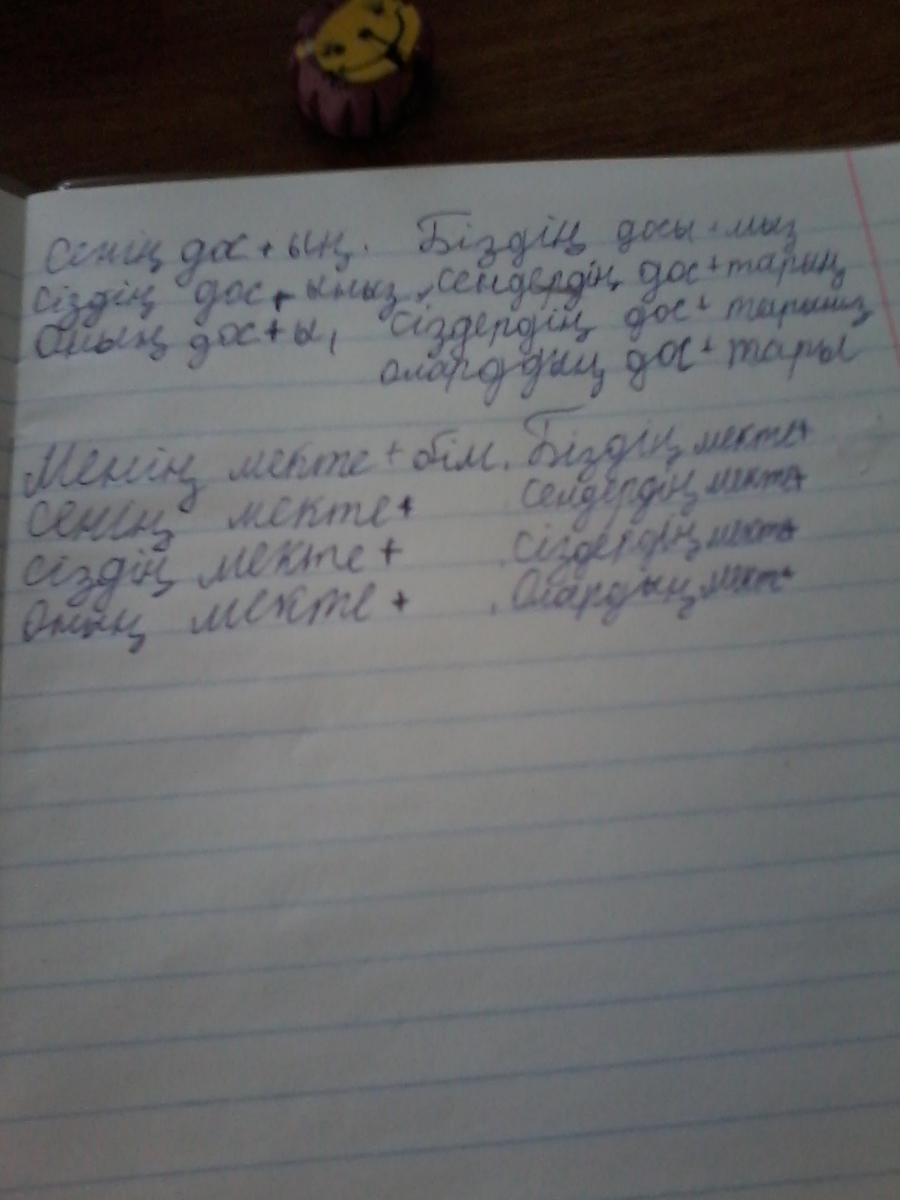 Сенің дос+ың. Біздің досы-мыз
сіздің дос+ыңыз, сендердің дос+тарың
Оның дос+ы, сіздердің дос+тарыңыз
олардың дос+тары
Менің мекте+бім. Біздің мекте+
сенің мекте+ сендердің мекте+
сіздің мекте+ сіздердің мекте+
Оның мекте+ Олардың мект+